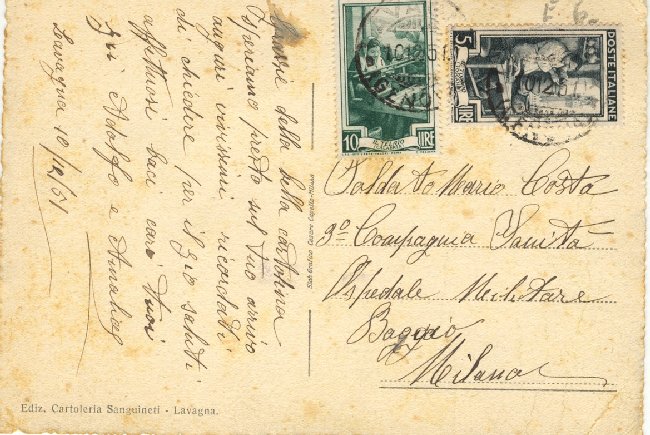 Grazie della bella cartolina
Speriamo presto sul tuo arrivo
auguri vivissimi ricordati
di chiedere per il saluti
affettuosi baci cari tuoi
zii Adolfo e
Lavagna 10/12/51
Ediz. Cartoleria Sanguineti - Lavagna.
10 LIRE
5 LIRE
POSTE ITALIANE
10.12.51
GENOVA
F 6.
Soldato Mario Costa
3º Compagnia Sanità
Ospedale Militare
Baggio
Milano